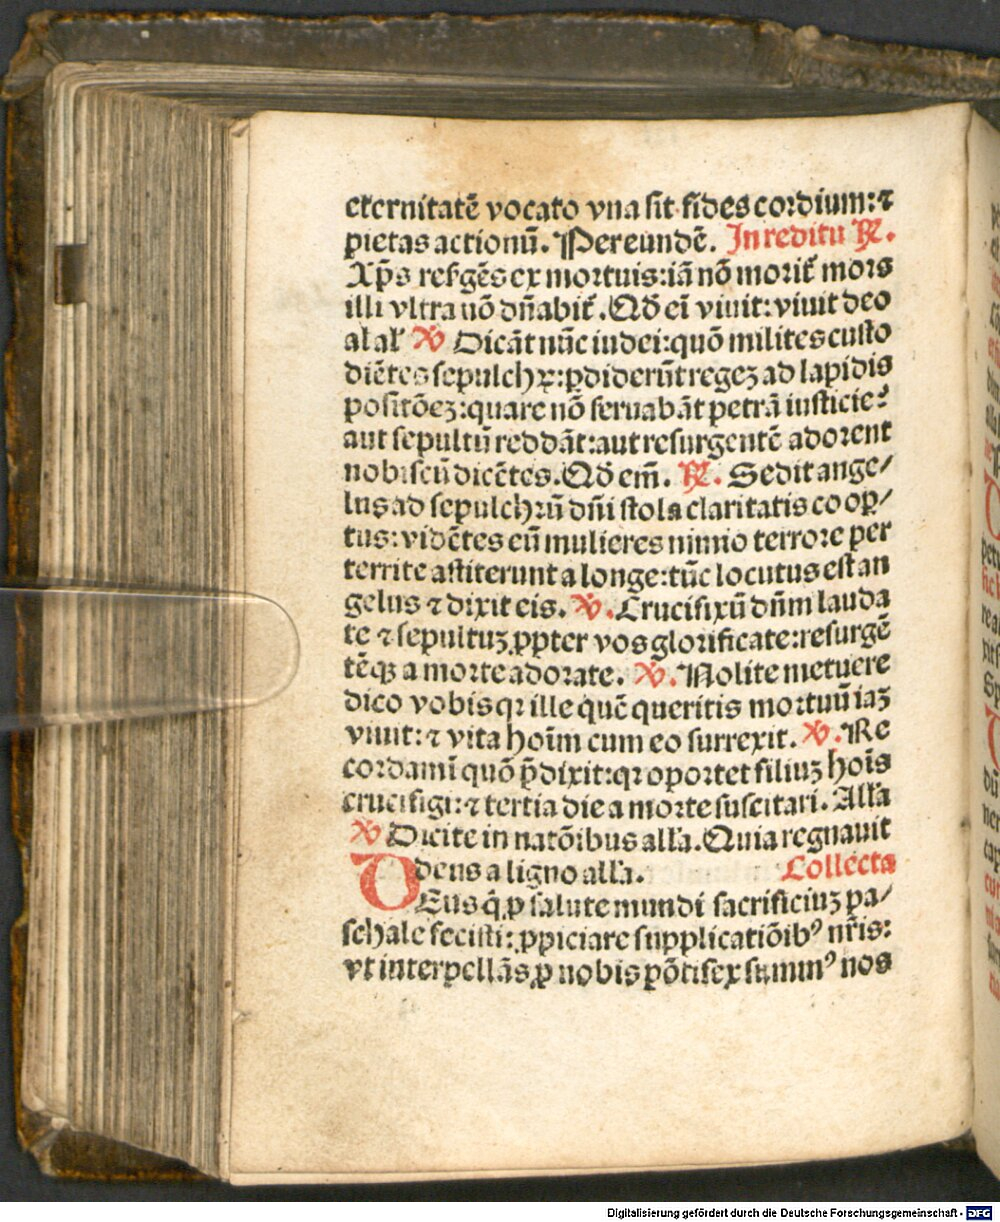 eternitatē vocato vna sit fides cordium: ⁊
pietas actionū. Per eundē. In reditu ℟.
Xp̄s resgēs ex mortuis: iā nō morit᷑ mors
illi vltra nō dn̄abit᷑. Qd̄ ei᷈ viuit: viuit deo
al'al' ℣ Dicāt nūc iudei: quō milites custo
diētes sepulchꝝ: ꝑdiderūt regeꝫ ad lapidis
positōeꝫ: quare nō seruabāt petrā iusticie?
aut sepultū reddāt: aut resurgentē adorent
nobiscū dicētes. Qd̄ em̄. ℟. Sedit ange⸗
lus ad sepulchrū dn̄i stola claritatis coop̄⸗
tus: vidētes eū mulieres nimio terrore per
territe astiterunt a longe: tūc locutus est an
gelus ⁊ dixit eis. ℣. Crucifixū dn̄m lauda
te ⁊ sepultuꝫ ꝓpter vos glorificate: resurgē
tēqꝫ a morte adorate. ℣. Nolite metuere
dico vobis qꝛ ille quē queritis mortuū iaꝫ
viuit: ⁊ vita hoīm cum eo surrexit. ℣. Re
cordami᷈ quō p̄dixit: qꝛ oportet filiuꝫ hoīs
crucifigi: ⁊ tertia die a morte suscitari. All'a
℣ Dicite in natōibus all'a. Quia regnauit
deus a ligno all'a. Collecta
DEus q̇ ꝓ salute mundi sacrificiuꝫ pa⸗
schale fecisti: ꝓpiciare supplicatiōibꝰ nr̄is:
vt interpellās ꝓ nobis pōtifex summꝰ nos
Digitalisierung gefördert durch die Deutsche Forschungsgemeinschaft - DFG